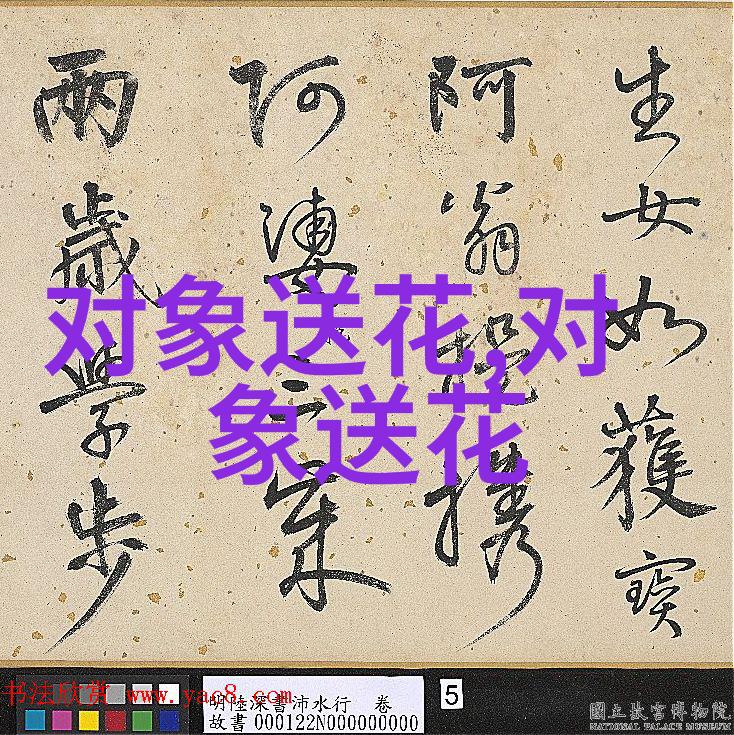 生女如獲寶
阿翁攜
阿婆
兩歲學步
对象送花,对
象送花
书法欣赏 www.yac8.com
明陸深書沛水行 卷
故書000122N000000000
5
國立故宮博物院
NATIONAL PALACE MUSEUM